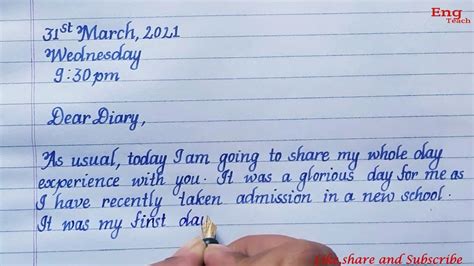 Eng
Teach
31st March, 2021
Wednesday
9:30pm
Dear Diary,
As usual, today I am going to share my whole day
experience with you. It was a glorious day for me as
I have recently taken admission in a new school.
It was my first day
Like, share and Subscribe